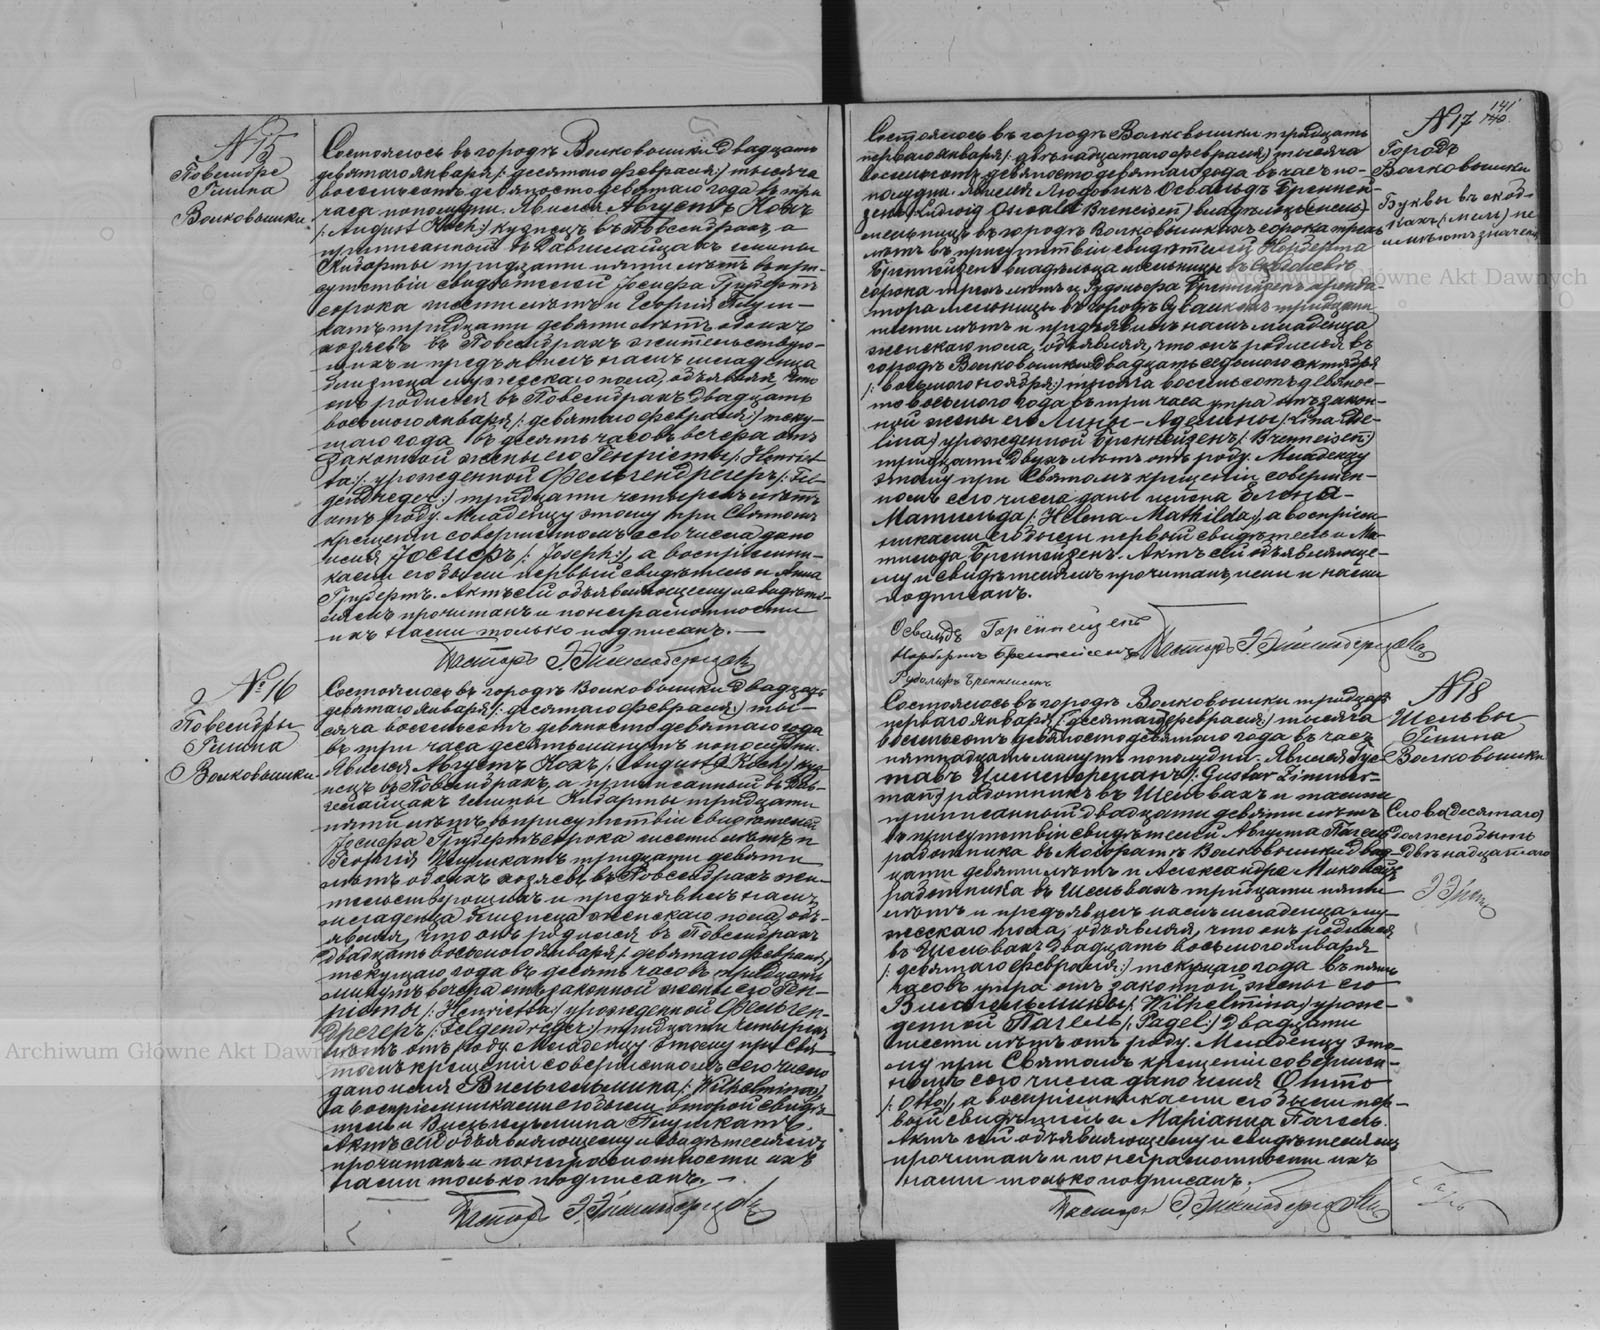 № 15
Повемдре
Гмина
Волковышки
Состоялось въ городѣ Волковышки двадцать
девятаго января /: десятаго февраля:/ тысяча
восемьсотъ девяносто девятаго года въ три
часа пополудни. Явился Августъ Кохъ
/: August Koch:/ кузнецъ въ Повемдрахъ а
приписанный въ гмины
Кидарты тридцати пяти лѣтъ въ при-
сутствіи свидѣтелей Іосифа Грубертъ
сорока шести лѣтъ и Георгія
тридцати девяти лѣтъ обоихъ
хозяевъ въ Повемдрахъ жительствую-
щихъ и предъявилъ намъ младенца
близнеца мужескаго пола, объявляя, что
онъ родился въ Повемдрахъ двадцать
восьмого января /: девятаго февраля:/ теку-
щаго года въ десять часовъ вечера отъ
законной жены его Генріеты /: Henriet-
ta:/ урожденной Фельгендрегеръ /: Fel-
gendreger:/ тридцати четырехъ лѣтъ
отъ роду. Младенцу этому при Святомъ
крещеніи совершенномъ сего числа дано
имя Іосифъ /: Joseph:/, а воспріемни-
ками его были первый свидѣтель и Анна
Грубертъ. Актъ сей объявляющему и свидѣте-
лямъ прочитанъ и по неграмотности
ихъ нами только подписанъ. —
Пасторъ
№ 16
Повемдры
Гмина
Волковышки
Состоялось въ городѣ Волковышки двадцать
девятаго января /: десятаго февраля:/ ты-
сяча восемьсотъ девяносто девятаго года
въ три часа десять минутъ пополудни.
Явился Августъ Кохъ /: August Koch:/ куз-
нецъ въ Повемдрахъ, а приписанный въ
гмины Кидарты тридцати
пяти лѣтъ, въ присутствіи свидѣтелей
Іосифа Грубертъ сорока шести лѣтъ и
Георгія тридцати девяти
лѣтъ обоихъ хозяевъ въ Повемдрахъ жи-
тельствующихъ и предъявилъ намъ
младенца близнеца женскаго пола, объ-
являя, что онъ родился въ Повемдрахъ
двадцать восьмого января /: девятаго февраля:/
текущаго года въ десять часовъ тридцать
минутъ вечера отъ законной жены его Ген-
ріеты /: Henrietta:/ урожденной Фельген-
дрегеръ /: Felgendreger:/ тридцати четырехъ
лѣтъ отъ роду. Младенцу этому при Свя-
томъ крещеніи совершенномъ сего числа
дано имя Вильгельмина /: Wilhelmina:/
а воспріемниками его были второй свидѣ-
тель и Вильгельмина
Актъ сей объявляющему и свидѣтелямъ
прочитанъ и по неграмотности ихъ
нами только подписанъ. —
Пасторъ
141
140.
№ 17
Городъ
Волковышки
Буквы въ скоб-
кахъ (мель) не
имѣютъ значенія
Состоялось въ городѣ Волковышки тридцать
перваго января /: двѣнадцатаго февраля:/ тысяча
восемьсотъ девяносто девятаго года въ часъ по-
полудни. Явился Людовикъ Освальдъ Бренней-
зенъ /: Ludwig Oswald Brenneisen:/ владѣлецъ (мель)
мельницъ въ городѣ Волковышкахъ сорока трехъ
лѣтъ въ присутствіи свидѣтелей Норберта
Бреннейзенъ владѣльца мельницы въ
сорока трехъ лѣтъ и Рудольфа Бреннейзенъ аренда-
тора мельницы въ городѣ Сувалкахъ тридцати
шести лѣтъ и предъявилъ намъ младенца
женскаго пола, объявляя, что онъ родился въ
городѣ Волковышки двадцать седьмого октября
/: восьмого ноября:/ тысяча восемьсотъ девянос-
то восьмого года въ три часа утра отъ закон-
ной жены его Лины-Аделины /: Lina Ade-
lina:/ урожденной Бреннейзенъ /: Brenneisen:/
тридцати двухъ лѣтъ отъ роду. Младенцу
этому при Святомъ крещеніи совершен-
номъ сего числа даны имена Елена-
Матильда /: Helena-Mathilda:/, а воспріем-
никами его были первый свидѣтель и Ма-
тильда Бреннейзенъ. Актъ сей объявляюще-
му и свидѣтелямъ прочитанъ, ими и нами
подписанъ.
Освальдъ Бреннейзенъ
Норбертъ Бреннейзенъ Пасторъ
Рудольфъ Бреннейзенъ
№ 18
Шельвы
Гмина
Волковышки
Слово (десятаго)
должно быть
двѣнадцатаго
Состоялось въ городѣ Волковышки тридцать
перваго января /: десятаго февраля:/ тысяча
восемьсотъ девяносто девятаго года въ часъ
пятнадцать минутъ пополудни. Явился Гус-
тавъ Циммерманъ /: Gustav Zimmer-
man:/ работникъ въ Шельвахъ и тамже
приписанный двадцати девяти лѣтъ
въ присутствіи свидѣтелей Августа Пагель
работника въ Маіоратѣ Волковышки двад-
цати девяти лѣтъ и Александра
работника въ Шельвахъ тридцати пяти
лѣтъ и предъявилъ намъ младенца му-
жескаго пола, объявляя, что онъ родился
въ Шельвахъ двадцать восьмого января
/: девятаго февраля:/ текущаго года въ пять
часовъ утра отъ законной жены его
Вильгельмины /: Wilhelmina:/ урож-
денной Пагель /: Pagel:/ двадцати
шести лѣтъ отъ роду. Младенцу это-
му при Святомъ крещеніи совершен-
номъ сего числа дано имя Отто
/: Otto:/, а воспріемниками его были пер-
вый свидѣтель и Маріанна Пагель.
Актъ сей объявляющему и свидѣтелямъ
прочитанъ и по неграмотности ихъ
нами только подписанъ.
Пасторъ
Archiwum Główne Akt Dawnych
Archiwum Główne Akt Dawnych